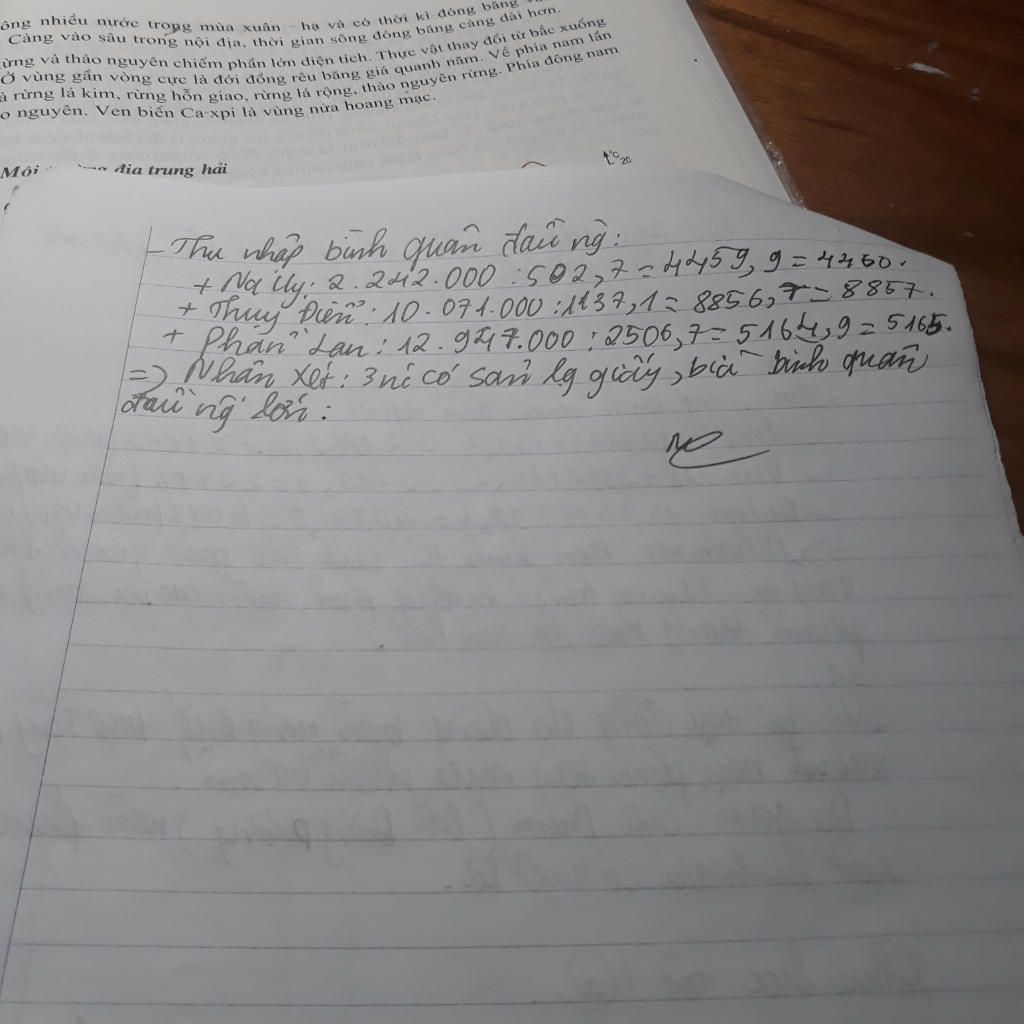 ông nhiều nước trong mùa xuân - hạ và có thời kì đóng băng
Càng vào sâu trong nội địa, thời gian sông đóng băng càng dài hơn.
ừng và thảo nguyên chiếm phần lớn diện tích. Thực vật thay đổi từ bắc xuống
Ở vùng gần vòng cực là đới đồng rêu băng giá quanh năm. Về phía nam lần
à rừng lá kim, rừng hỗn giao, rừng lá rộng, thảo nguyên rừng. Phía đông nam
o nguyên. Ven biển Ca-xpi là vùng nửa hoang mạc.
Môi địa trung hải
°C
20
- Thu nhập bình quân đầu ng:
+ Na Uy: 2.242.000 : 502,7 = 4459,9 = 4460.
+ Thụy Điển: 10.071.000 : 1137,1 = 8856,7 = 8857.
+ Phần Lan: 12.947.000 : 2506,7 = 5164,9 = 5165.
=> Nhận xét: 3 nc có sản lg giấy, bìa bình quân
đầu ng lớn: